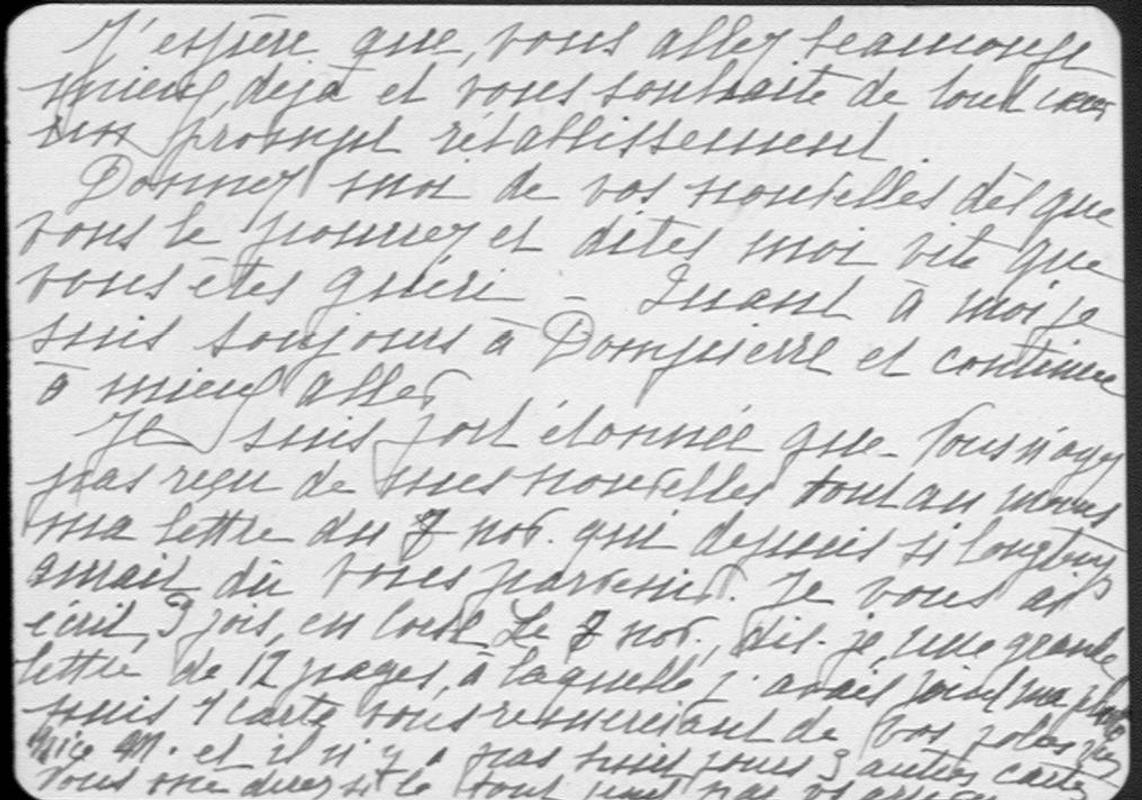 J'espère que, vous allez beaucoup
mieux, déjà et vous souhaite de tout cœur
un prompt rétablissement.
Donnez moi de vos nouvelles dès que
vous le pourrez et dites moi vite que
vous êtes guéri – Quant à moi je
suis toujours à Dompierre et continue
à mieux aller
Je suis fort étonnée que vous n'ayez
pas reçu de mes nouvelles tout au moins
ma lettre du 7 nov. qui depuis si longtemps
aurait dû vous parvenir. Je vous ai
écrit, 3 fois, en tout Le 7 nov., dis-je, une grande
lettre de 12 pages, à laquelle j'avais joint ma photo
puis 1 carte vous remerciant de vos jolies
et il n'y a pas huit jours 3 autres cartes
Vous me direz si le tout pas